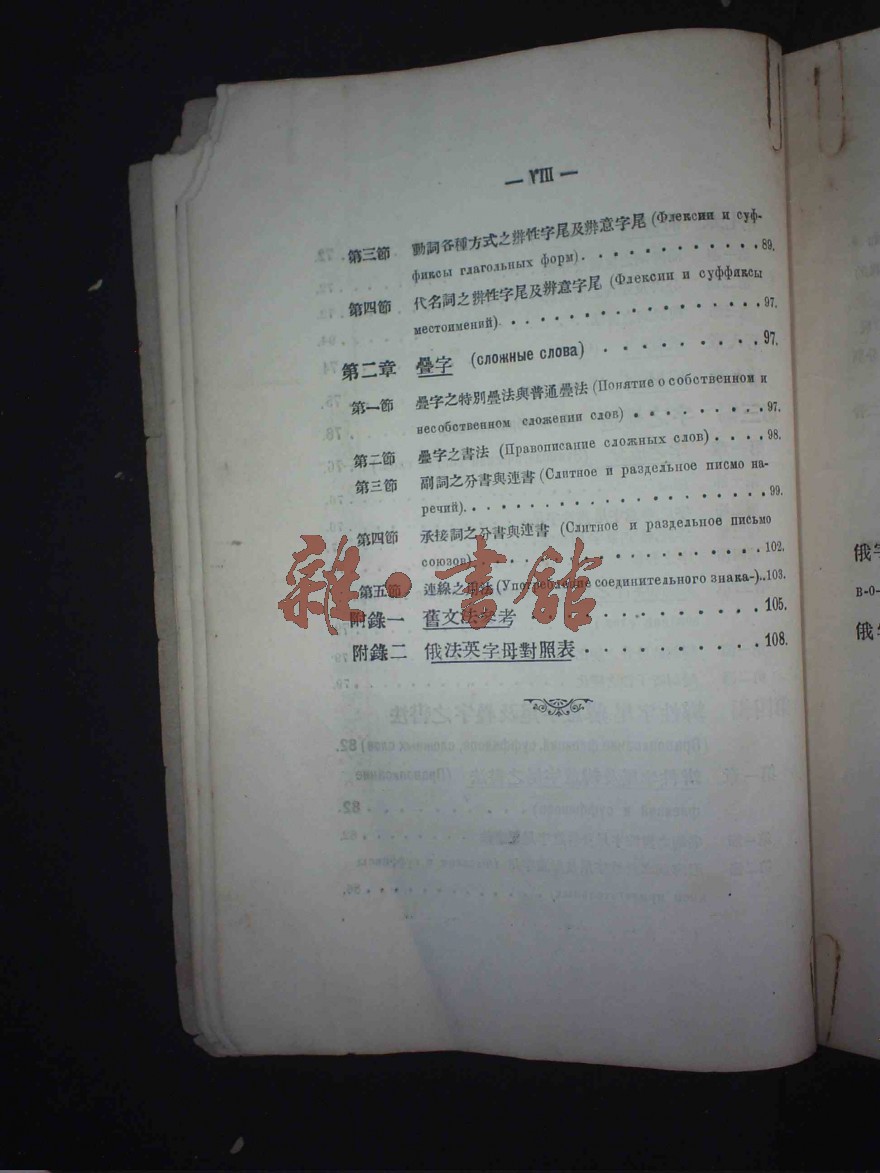 — VIII —
第三節 動詞各種方式之辨性字尾及辨意字尾 (Флексии и суф-
фиксы глагольных форм). . . . . . . . . . . . 89.
第四節 代名詞之辨性字尾及辨意字尾 (Флексии и суффиксы
местоимений). . . . . . . . . . . . . . . . 97.
第二章 疊字 (сложные слова) . . . . . . . . . 97.
第一節 疊字之特別疊法與普通疊法 (Понятие о собственном и
несобственном сложении слов) . . . . . . . . 97.
第二節 疊字之書法 (Правописание сложных слов) . . . . 98.
第三節 副詞之分書與連書 (Слитное и раздельное писмо на-
речий). . . . . . . . . . . . . . . . . . 99.
第四節 承接詞之分書與連書 (Слитное и раздельное письмо
союзов) . . . . . . . . . . . . . . . . . 102.
第五節 連線之用法 (Употребление соединительного знака-)..103.
附錄一 舊文法參考 . . . . . . . . . . . . . 105.
附錄二 俄法英字母對照表 . . . . . . . . . . 108.
雜·書館
俄字
в-о-
俄